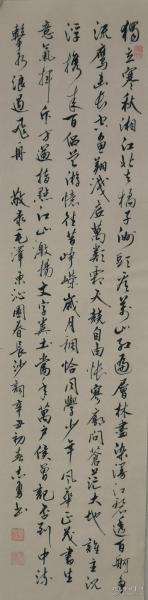 獨立寒秋湘江北去橘子洲頭看萬山紅遍層林盡染漫江碧透百舸爭
流鷹擊長空魚翔淺底萬類霜天競自由悵寥廓問蒼茫大地誰主沉
浮攜來百侶曾游憶往昔崢嶸歲月稠恰同學少年風華正茂書生
意氣揮斥方遒指點江山激揚文字糞土當年萬户侯曾記否到中流
擊水浪遏飛舟 敬录毛澤東沁園春長沙詞辛丑初春志勇書